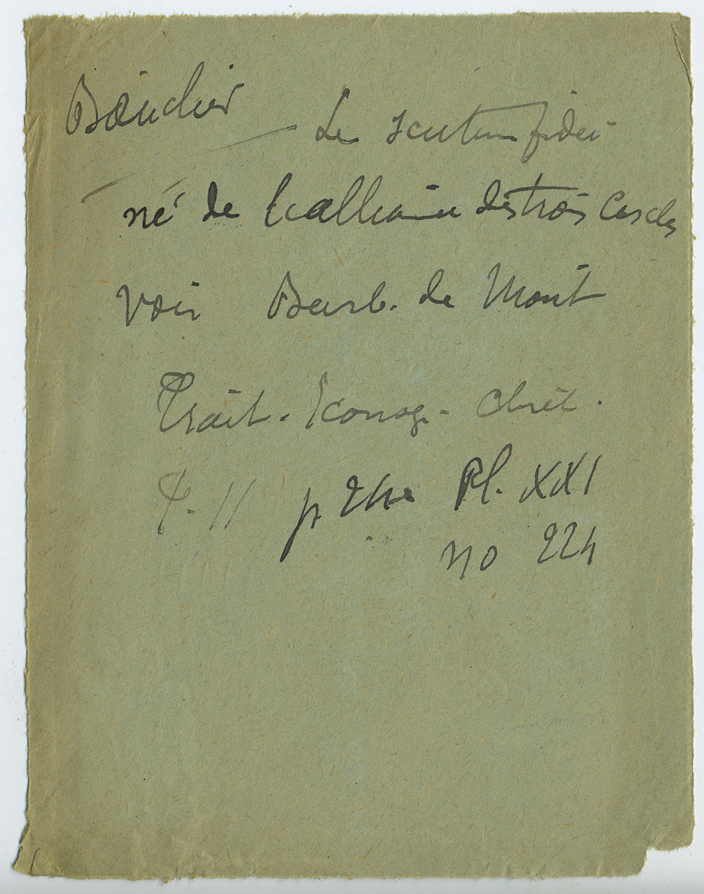 Bouclier Le scutum fidei
né de l'alliance des trois Cercles
voir Barb. de Mont
Trait. Iconog. chrét.
T. II p Pl. XXI
no 224